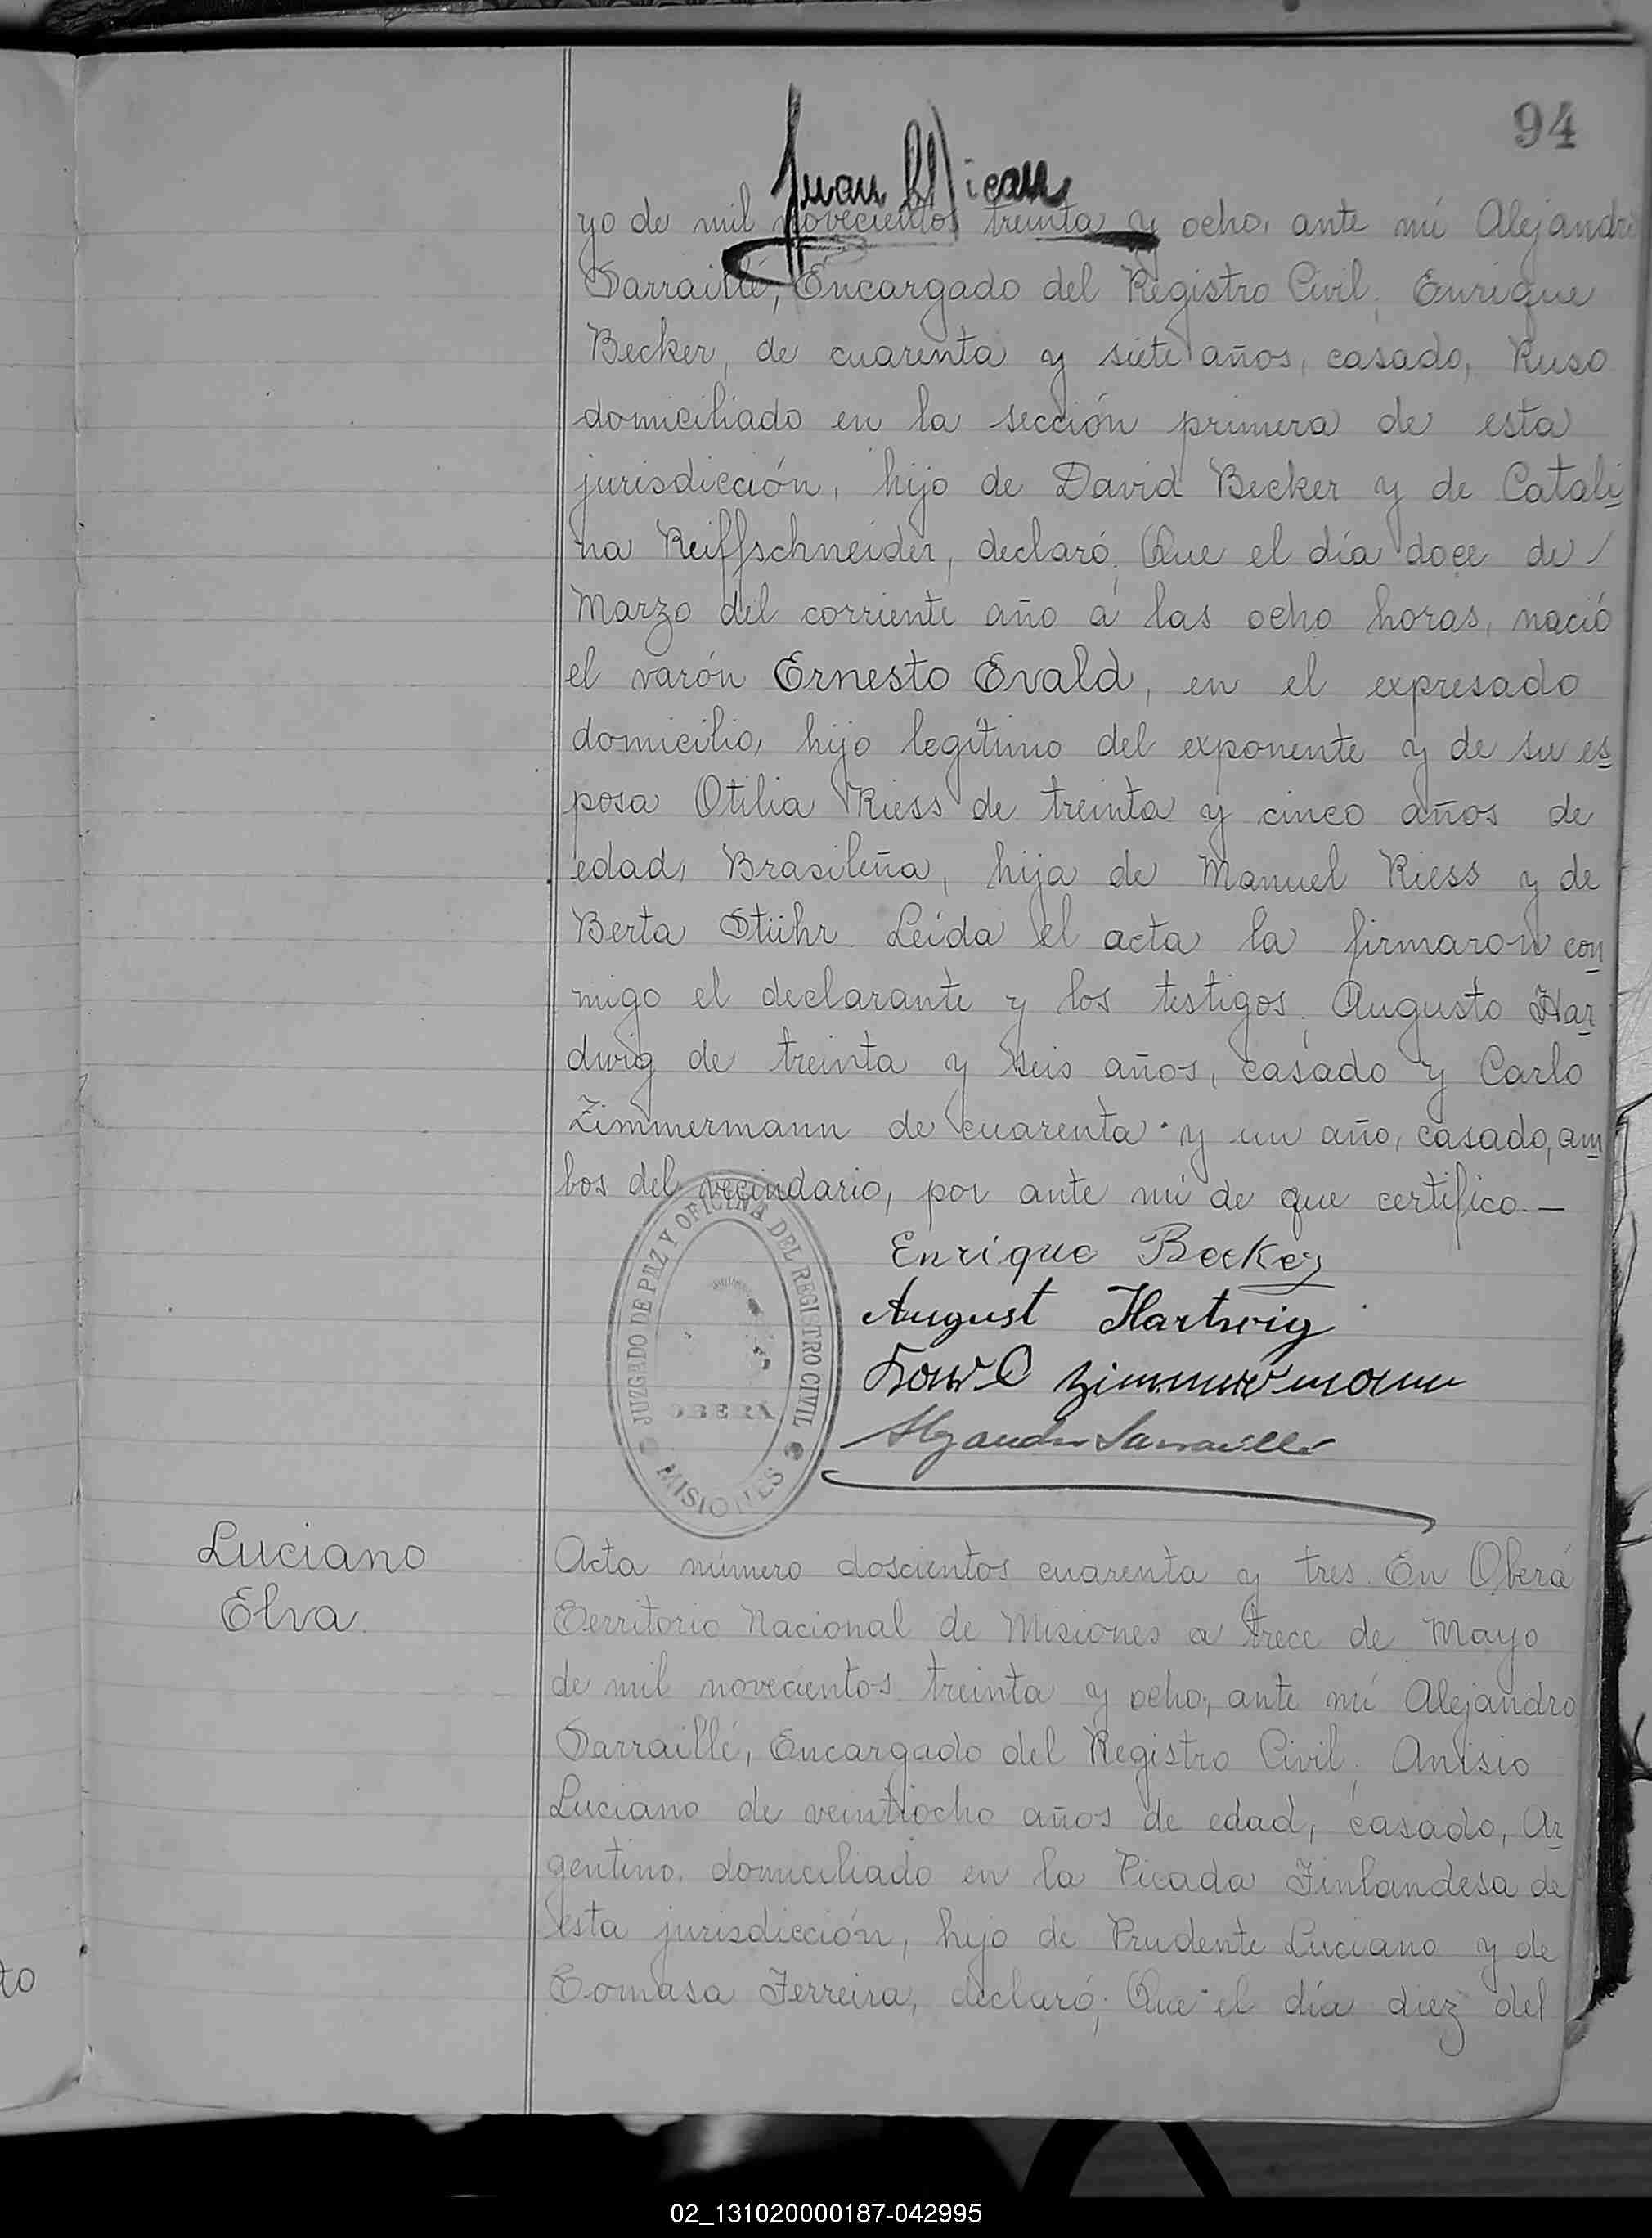 94
Juan
yo de mil novecientos treinta y ocho, ante mí Alejandro
Sarraillé, Encargado del Registro Civil; Enrique
Becker, de cuarenta y siete años, casado, Ruso
domiciliado en la sección primera de esta
jurisdicción, hijo de David Becker y de Catali
na Reiffschneider, declaró; Que el día doce de
Marzo del corriente año á las ocho horas, nació
el varón Ernesto Evald, en el expresado
domicilio, hijo legítimo del exponente y de su es
posa Otilia Riess de treinta y cinco años de
edad, Brasileña, hija de Manuel Riess y de
Berta Stühr. Leída el acta la firmaron con
migo el declarante y los testigos; Augusto Har
dwig de treinta y seis años, casado y Carlo
Zimmermann de cuarenta y un año, casado, am
bos del vecindario, por ante mí de que certifico.—
Enrique Becker
August Hartwig
Zimmermann
Alejandro Sarraillé
JUZGADO DE PAZ Y OFICINA DEL REGISTRO CIVIL
OBERÁ
MISIONES
Luciano
Elva.
Acta número doscientos cuarenta y tres. En Oberá
Territorio Nacional de Misiones a trece de Mayo
de mil novecientos treinta y ocho, ante mí Alejandro
Sarraillé, Encargado del Registro Civil; Anisio
Luciano de veintiocho años de edad, casado, Ar
gentino, domiciliado en la Picada Finlandesa de
esta jurisdicción, hijo de Prudente Luciano y de
Tomasa Ferreira, declaró; Que el día diez del
to
02_131020000187-042995